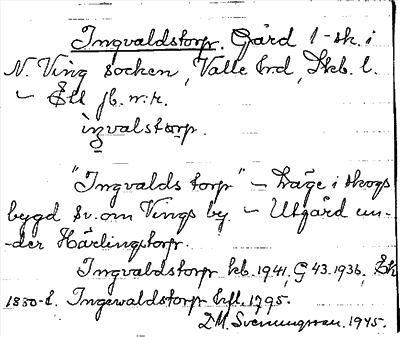 Ingvaldstorp. Gård 1-sk. i
N. Ving socken, Valle hrd, Skb. l.
– Ell jb. nr.
ìŋvalstorp.
"Ingvalds torp" – Läge i skogs
bygd sv. om Vings by. – Utgård un-
-der Härlingstorp.
Ingvaldstorp kb. 1941, G 43. 1936, Ek
1880-t. Ingewaldstorp hfl. 1795.
D.M. Svenungsson. 1945.